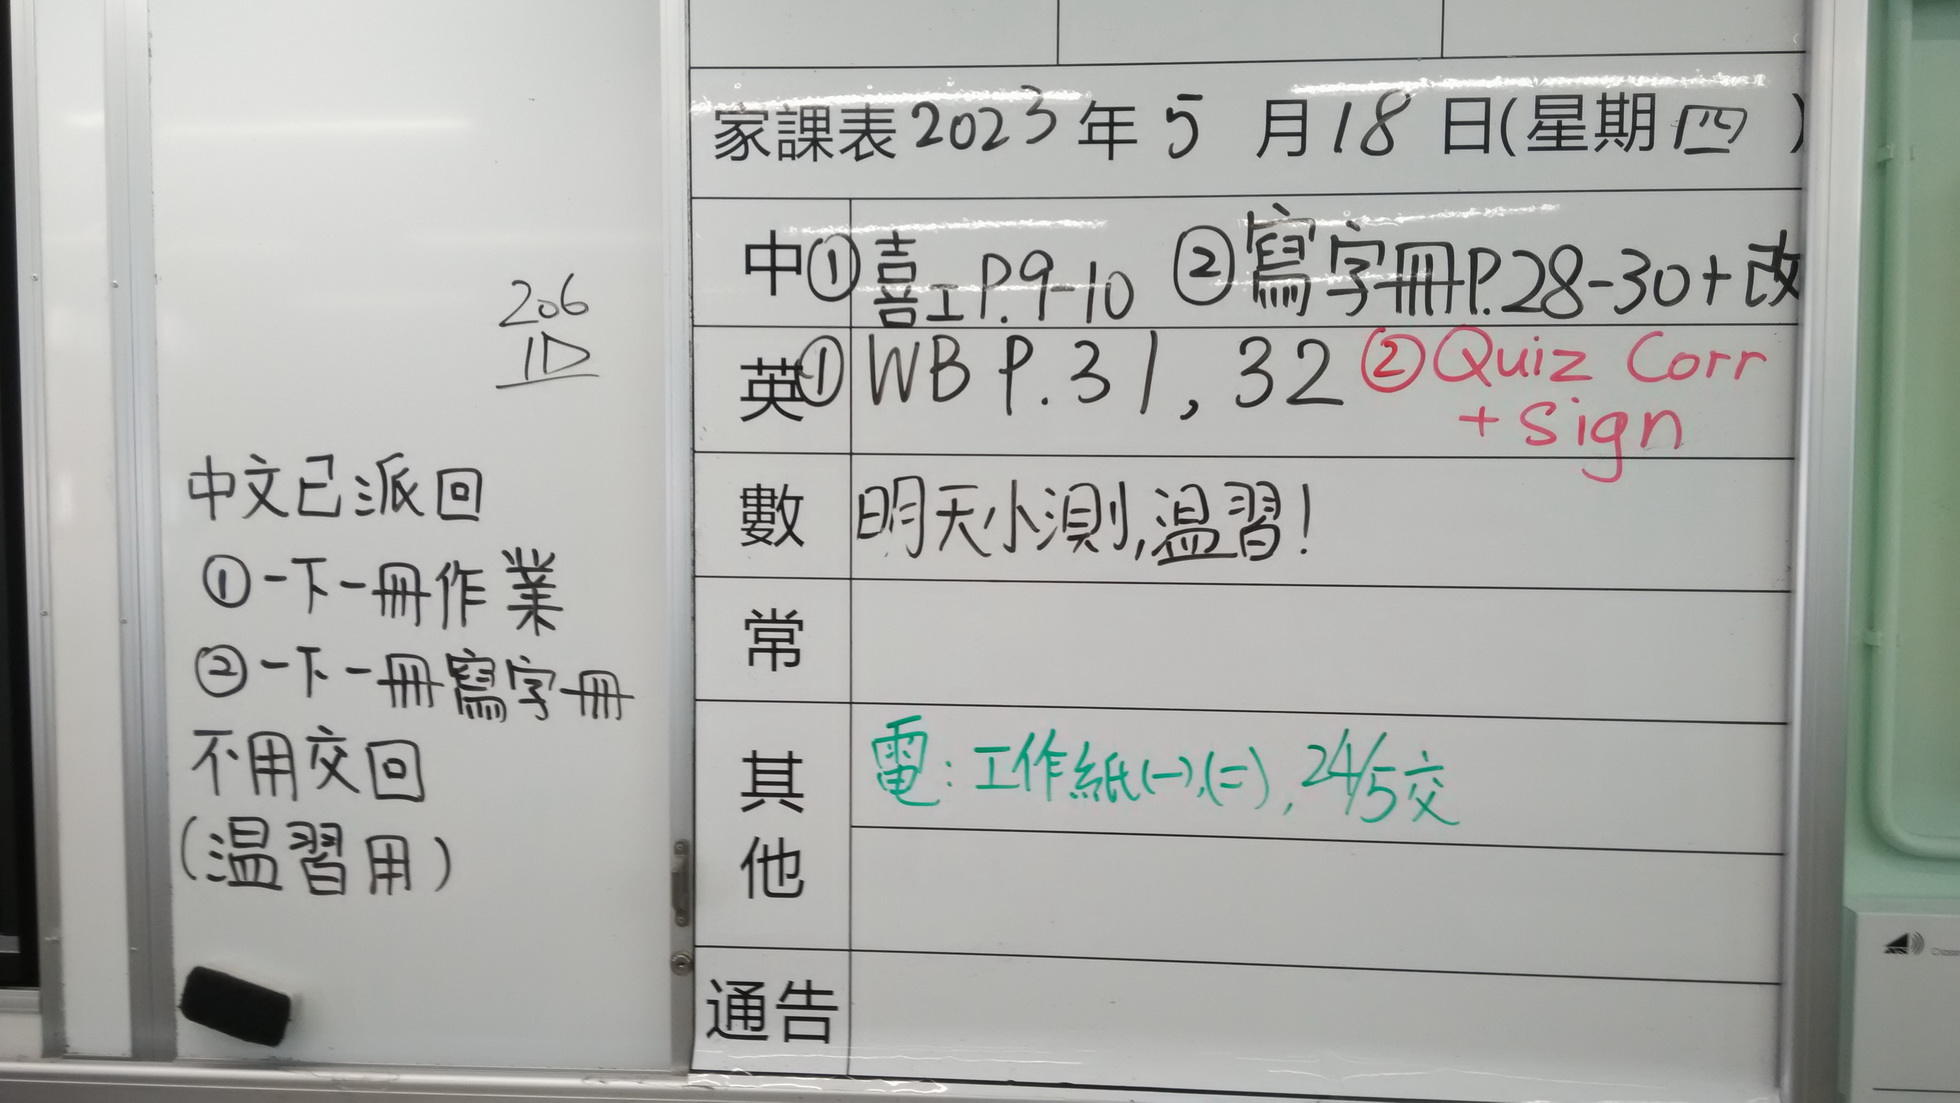 206
1D
中文已派回
①一下一冊作業
②一下一冊寫字冊
不用交回
(温習用)
家課表2023年5月18日(星期四)
中①喜工P.9-10 ②寫字冊P.28-30+改
英①WB P.31, 32 ②Quiz Corr
+ Sign
數 明天小測,温習!
常
其他
電:工作紙(一),(二), 24/5交
通告